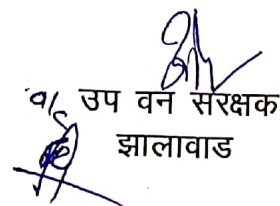 उप वन संरक्षक
झालावाड